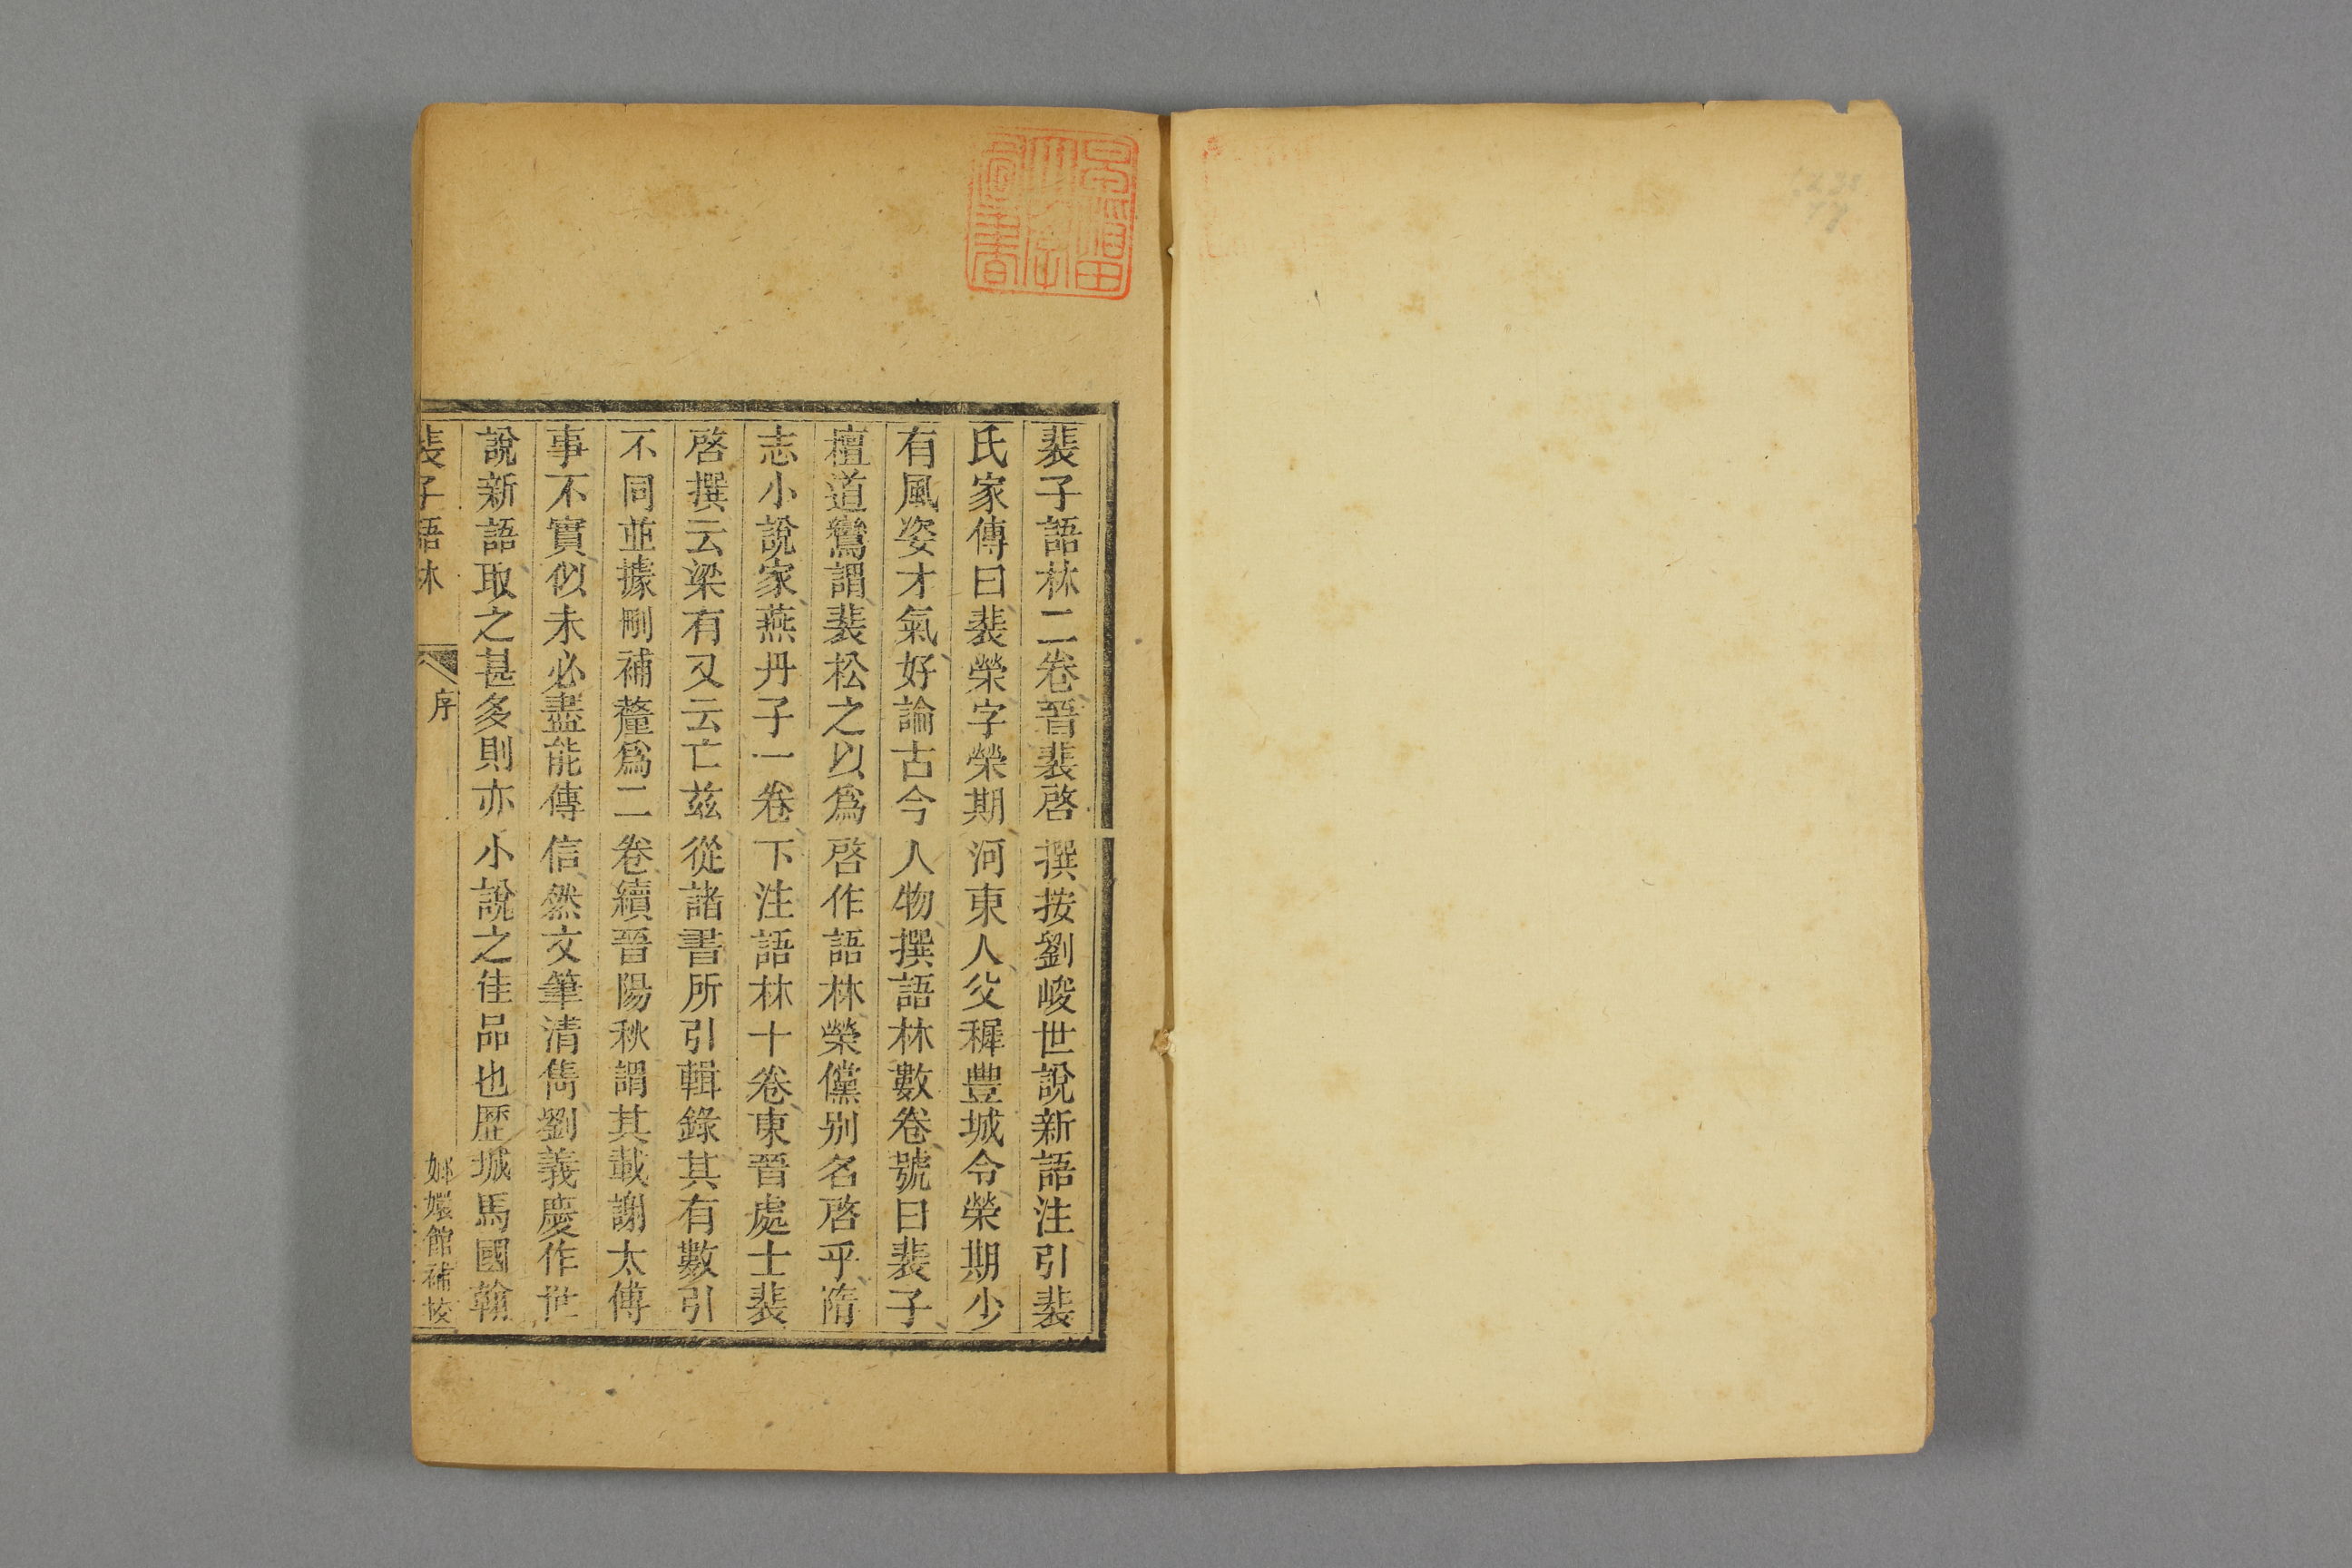 裴子語林二卷晉裴啓撰按劉峻世說新語注引裴
氏家傳曰裴榮字榮期河東人父穉豐城令榮期少
有風姿才氣好論古今人物撰語林數卷號曰裴子
檀道鸞謂裴松之以爲啓作語林榮儻别名啓乎隋
志小說家燕丹子一卷下注語林十卷東晉處士裴
啓撰云梁有又云亡茲從諸書所引輯錄其有數引
不同並據刪補釐爲二卷續晉陽秋謂其載謝太傅
事不實似未必盡能傳信然文筆清雋劉義慶作世
說新語取之甚多則亦小說之佳品也歷城馬國翰
裴子語林 序 嫏嬛館補校